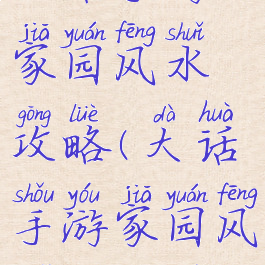 jiā yuán fēng shuǐ
家园风水
gōng lüè dà huà
攻略(大话
shǒu yóu jiā yuán fēng
手游家园风